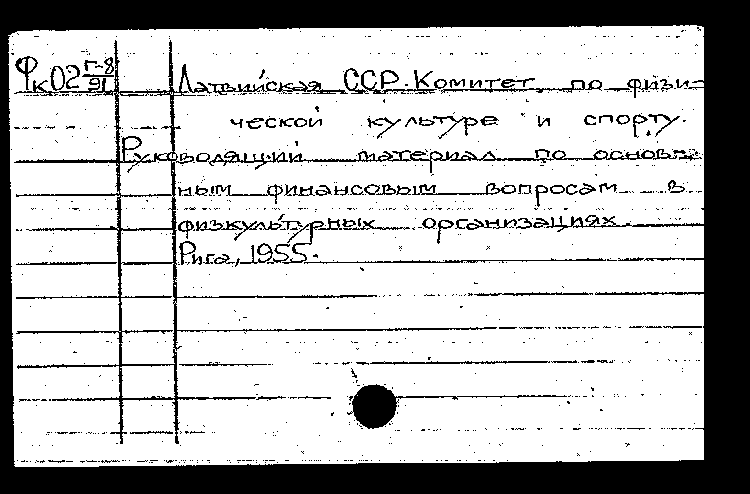 Фк02 Г-8/91 Латвийская ССР. Комитет по физи-
ческой культуре и спорту.
Руководящий материал по основ-
ным финансовым вопросам в
физкультурных организациях.
Рига, 1955.